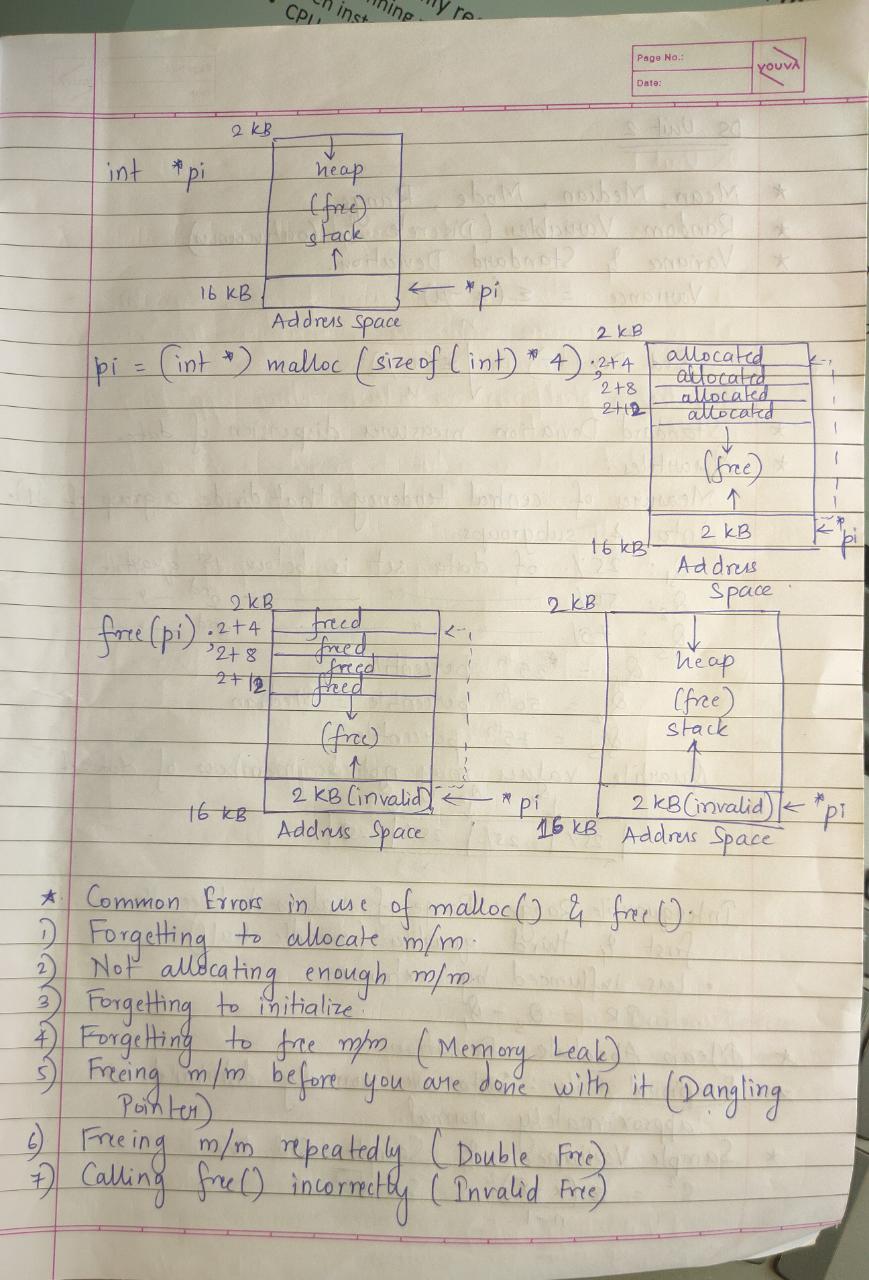 CPU
Page No.:
Date:
YOUVA
2 KB
int *pi
heap
(free)
stack
16 KB
*pi
Address Space
pi = (int *) malloc (sizeof (int) * 4);
2 KB
2+4
2+8
2+12
allocated
allocated
allocated
allocated
(free)
2 KB
*pi
16 KB
Address
Space
free(pi);
2 KB
2+4
2+8
2+12
freed
freed
freed
freed
(free)
2 KB (invalid)
*pi
16 KB
Address Space
2 KB
heap
(free)
stack
2 KB (invalid)
*pi
16 KB
Address Space
* Common Errors in use of malloc() & free().
1) Forgetting to allocate m/m.
2) Not allocating enough m/m.
3) Forgetting to initialize.
4) Forgetting to free m/m (Memory Leak)
5) Freeing m/m before you are done with it (Dangling
Pointer)
6) Freeing m/m repeatedly (Double Free)
7) Calling free() incorrectly (Invalid Free)